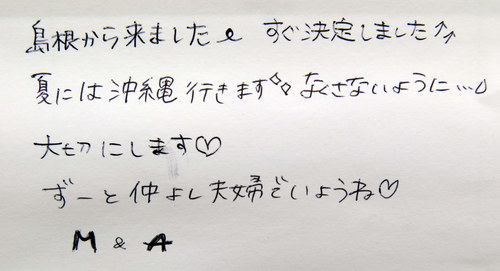 島根から来ました♪ すぐ決定しました↑↑
夏には沖縄行きます✧✧ なくさないように…♪
大切にします♡
ずーと仲よし夫婦でいようね♡
M & A